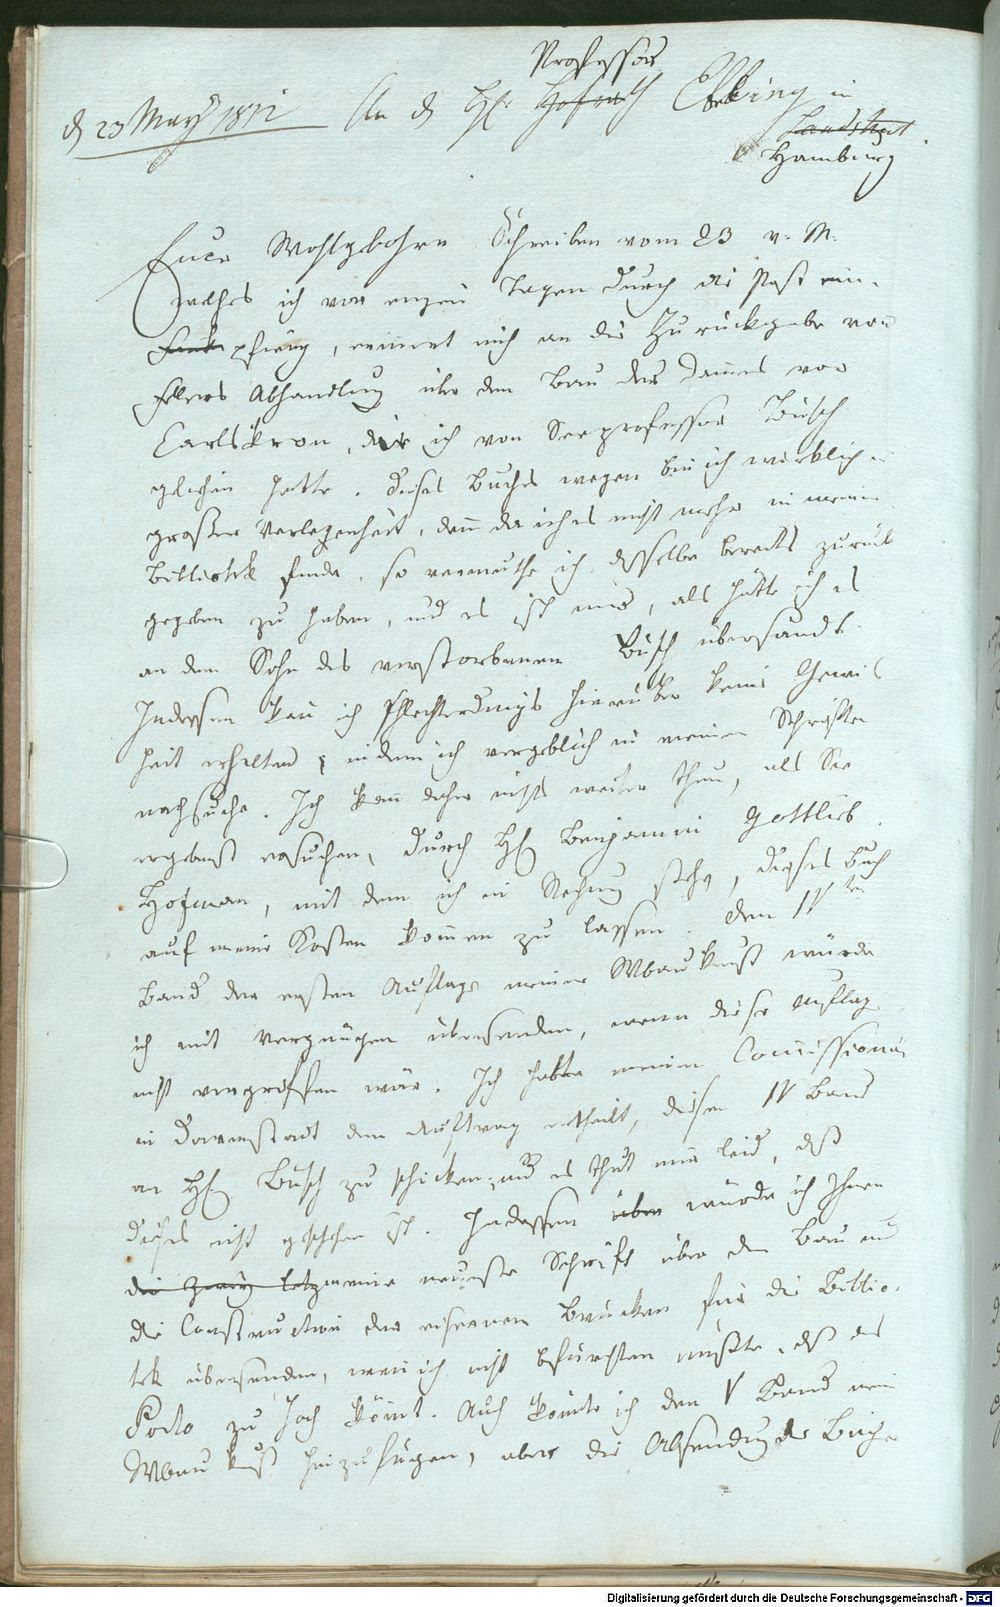 Professor
d 23 May 1812 An d H. Hofrath Ebeling in
Landshut
Hamburg
Euer Wohlgebohrn Schreiben vom 23 v. M.
welches ich vor einigen Tagen durch die Post em-
pfieng, erinnert mich an die Zurückgabe von
Abhandlung über den Bau des Dammes von
Carlskron, die ich von Seeprofessor Büsch
geliehen hatte. Dieses Buches wegen bin ich wirklich in
großer Verlegenheit, denn da ich es nicht mehr in meiner
Bibliothek finde, so vermuthe ich dasselbe bereits zurück
gegeben zu haben, und es ist mir, als hätte ich es
an den Sohn des verstorbenen Büsch übersandt.
Indessen kan ich schlechterdings hierüber keine Gewis
heit erhalten, indem ich vergeblich in meinen Schriften
nachsuche. Ich kann daher nichts weiter thun, als Sie
ergebenst ersuchen, durch H. Benjamin Gottlieb
Hofman, mit dem ich in Rechnung stehe, dieses Buch
auf meine Kosten kommen zu lassen. Den IV ten
Band der ersten Auflage meiner Wbaukunst würde
ich mit Vergnügen übersenden, wenn diese Auflag
nicht vergriffen wär. Ich hatte meinem Commissionär
in Darmstadt den Auftrag ertheilt, diesen IV Band
an H. Büsch zu schicken, und es thut mir leid, daß
dieses nicht geschehen ist. Indessen über würde ich Ihnen
die zwey letz meine neueste Schrift über den Bau und
die Construction der eisernen Brücken für die Biblio-
tek übersenden, wenn ich nicht befürchten müßte, daß das
Porto zu hoch kömt. Auch könnte ich den V Band mein
Wbaukunst hinzufügen, aber die Absendung der Büche
Digitalisierung gefördert durch die Deutsche Forschungsgemeinschaft - DFG